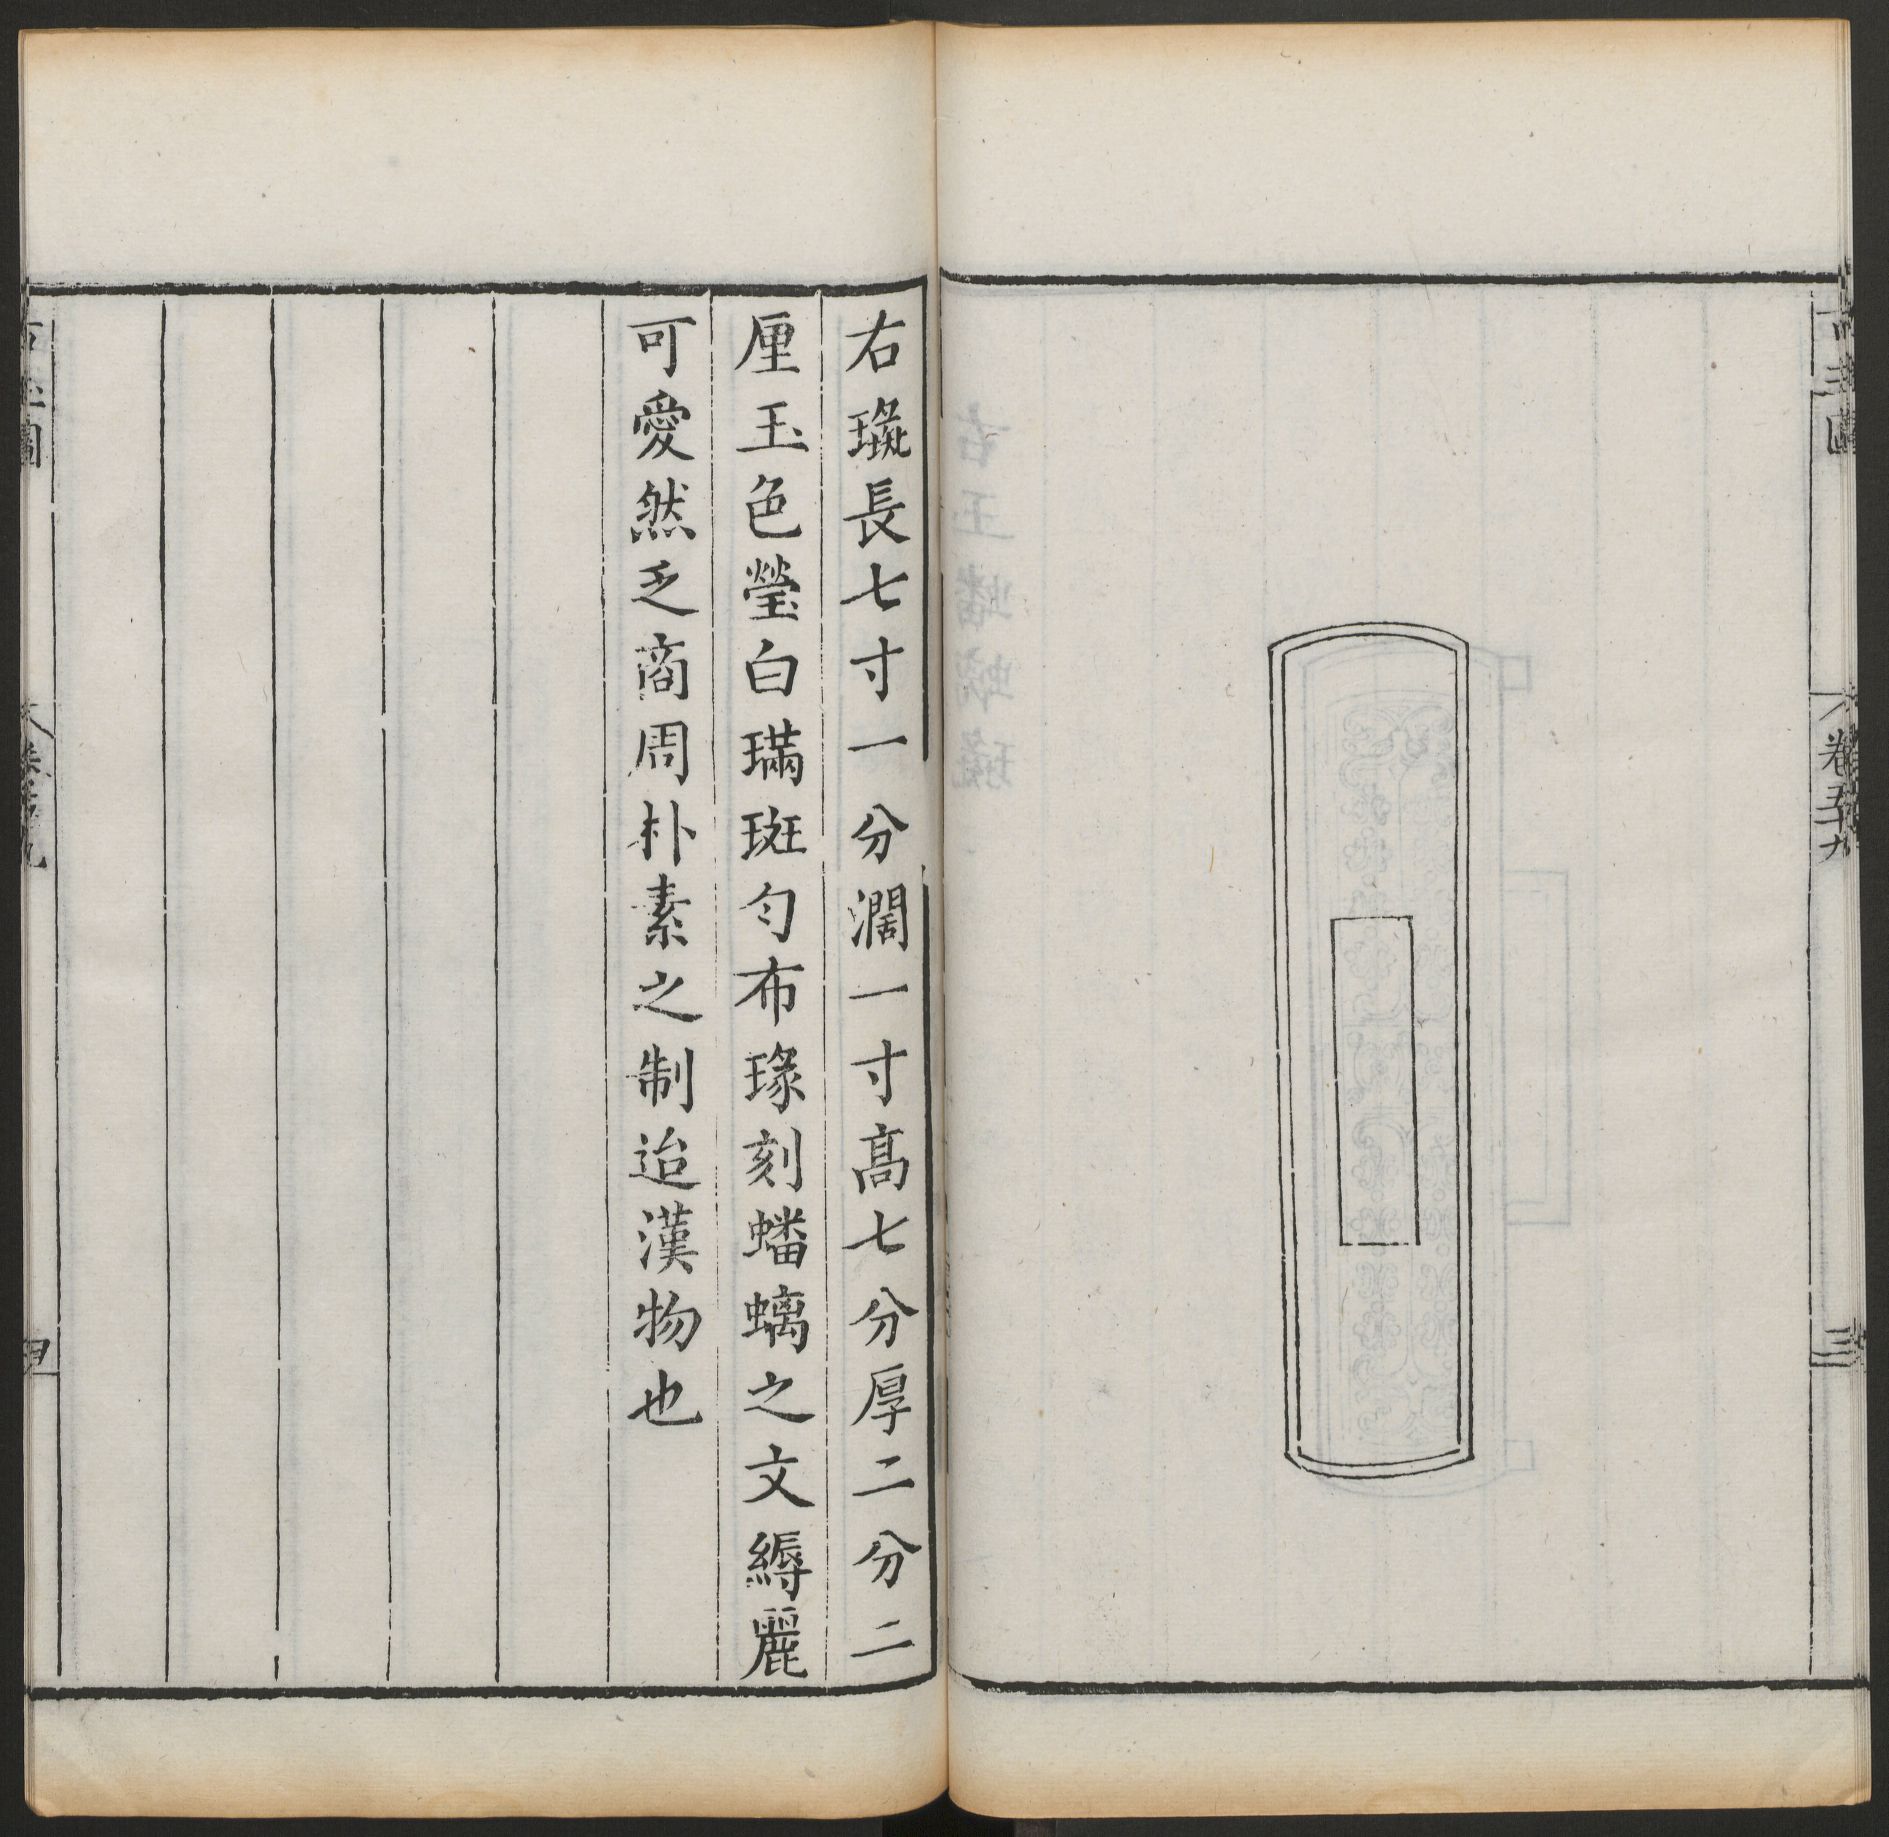 古玉圖
卷五十九
三
右璏長七寸一分濶一寸高七分厚二分二
厘玉色瑩白璊斑勻布瑑刻蟠螭之文縟麗
可愛然乏商周朴素之制迨漢物也